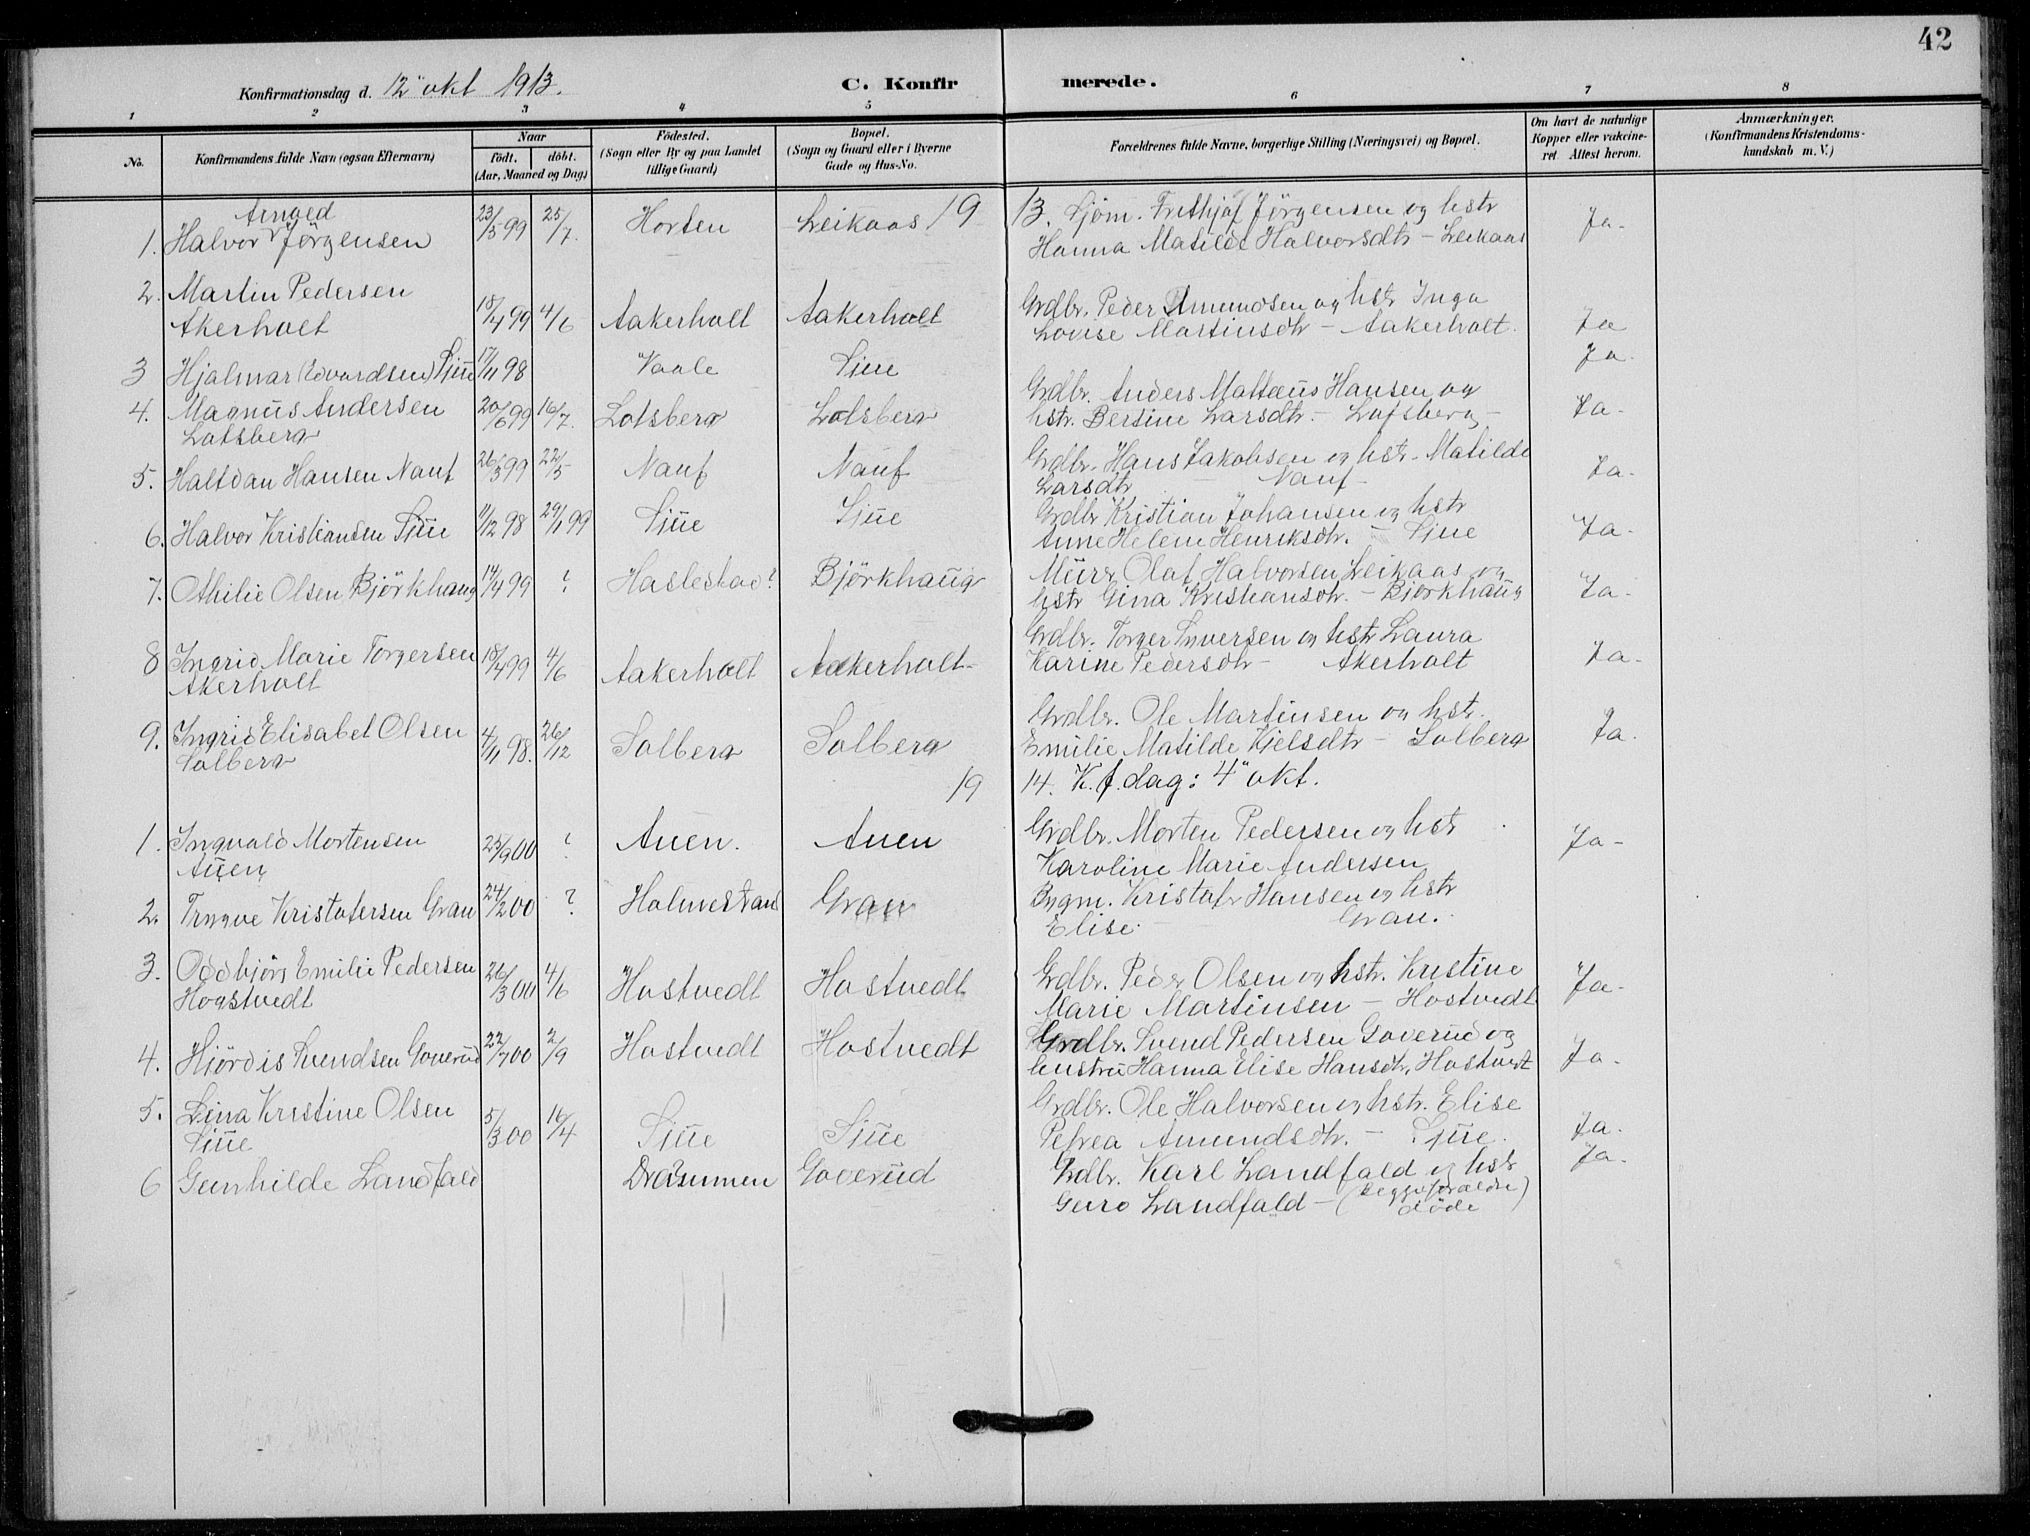 42
Konfirmationsdag d. 12" okt 1913. C. Konfirmerede.
1 2 3 4 5 6 7 8
No.
Konfirmandens fulde Navn (ogsaa Efternavn)
Naar
født. døbt.
(Aar, Maaned og Dag)
Fødested.
(Sogn eller By og paa Landet
tillige Gaard)
Bopæl.
(Sogn og Gaard eller i Byerne
Gade og Hus-No.
Forældrenes fulde Navne, borgerlige Stilling (Næringsvei) og Bopæl.
Om havt de naturlige
Kopper eller vakcine-
ret Attest herom.
Anmærkninger.
(Konfirmandens Kristendoms-
kundskab m. V.)
19 13.
Arnold
1. Halvor Jörgensen 23/5 99 25/7. Horten Leikaas Sjöm. Frithjof Jörgensen og hstr Ja-
Hanna Matilde Halvorsdtr - Leikaas
2. Martin Pedersen Grdbr. Peder Amundsen og hstr Inga
Akerholt 18/4 99 4/6 Aakerholt Aakerholt Lovise Martinsdtr - Aakerholt. Ja
3 Hjalmar (Edvardsen) Sjue 17/11 98 Vaale Sjue Ja.
4. Magnus Andersen 20/6 99 16/7. Lofsberg Lofsberg Grdbr. Anders Mattæus Hansen og Ja-
Lofsberg hstr. Bertine Larsdtr. - Lofsberg -
5. Halfdan Hansen Nauf 26/3 99 22/5 Nauf Nauf Grdbr. Hans Jakobsen og hstr. Matilde Ja-
Larsdtr - Nauf -
6. Halvor Kristiansen Sjue 11/12 98 29/1 99 Sjue Sjue Grdbr Kristian Johansen og hstr Ja-
Anne Helene Henriksdtr. - Sjue
7. Othilie Olsen Björkhaug 14/4 99 ? Haslestad? Björkhaug Murer Olaf Halvorsen Leikaas og Ja-
hstr Gina Kristiansdtr. - Björkhaug
8 Ingrid Marie Torgersen 18/4 99 4/6 Aakerholt Aakerholt- Grdbr. Torger Syversen og hstr Laura Ja-
Akerholt Karine Pedersdtr - Akerholt
9. Ingrid Elisabet Olsen 4/11 98. 26/12 Solberg Solberg Grdbr. Ole Martinsen og hstr. Ja.
Solberg Emilie Matilde Kjelsdtr - Solberg
19 14. K.f.dag: 4" okt.
1. Ingvald Mortensen 25/9 00 ? Auen. Auen Grdbr. Morten Pedersen og hstr Ja-
Auen Karoline Marie Andersen
2. Trygve Kristofersen Gran 24/2 00 ? Holmestrand Gran Bygm. Kristofr Hansen og hstr
Elise. - Gran.
3. Oddbjörg Emilie Pedersen 26/3 00 4/6 Hostvedt Hostvedt Grdbr. Peder Olsen og hstr. Kristine Ja-
Hogstvedt Marie Martinsen - Hostvedt
4. Hjördis Svendsen Goverud 22/7 00 2/9 Hostvedt Hostvedt Grdbr. Svend Pedersen Goverud og Ja-
hustru Hanna Elise Hansdtr. Hostvedt
5. Lina Kristine Olsen 5/3 00 16/4 Sjue Sjue Grdbr. Ole Halvorsen og hstr. Elise Ja.
Sjue Petrea Amundsdtr. - Sjue.
6 Gunhilde Landfald Drammen Goverud Grdbr. Karl Landfald og hstr Ja-
Guro Landfald - (Begge forældre)
döde